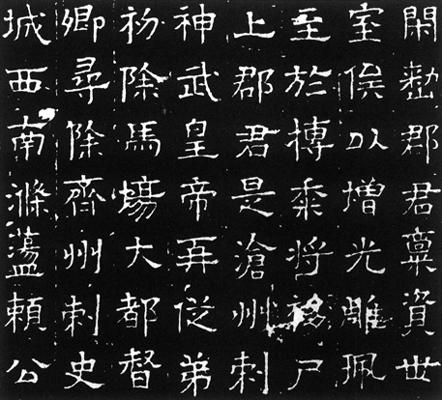 閑郡君稟資世
室俟以增光雕珮
至於摶黍將尸
上郡君是滄州刺
神武皇帝再從弟
初除馬場大都督
卿尋除齊州刺史
城西南滌蕩賴公